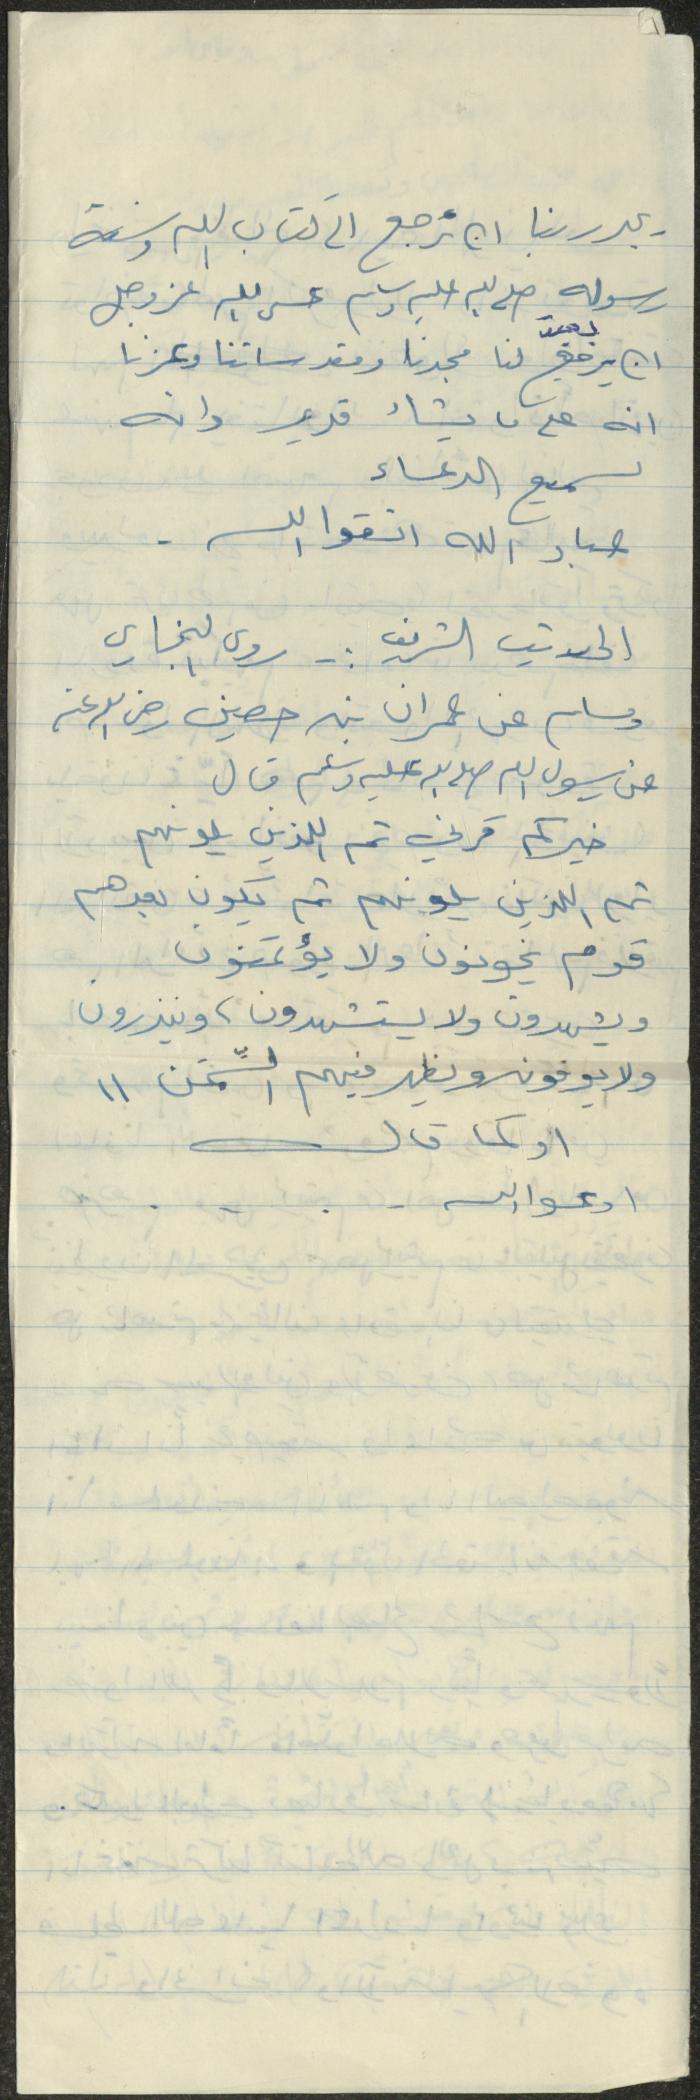 يجدر بنا ان نرجع الى كتاب الله وسنة
رسوله صلى الله عليه وسلم عسى الله عز وجل
ان يرجع يعيد لنا مجدنا ومقدساتنا وعزنا
انه على ما يشاء قدير وانه
لسميع الدعاء
عباد الله اتقوا الله -
الحديث الشريف :- روى البخاري
ومسلم عن عمران بن حصين رضي الله عنه
عن رسول الله صلى الله عليه وسلم قال
خيركم قرني ثم الذين يلونهم
ثم الذين يلونهم ثم يكون بعدهم
قوم يخونون ولا يؤتمنون
ويشهدون ولا يستشهدون، وينذرون
ولا يوفون ويظهر فيهم السِّمَن "
او كما قال
ادعوا الله - . - .